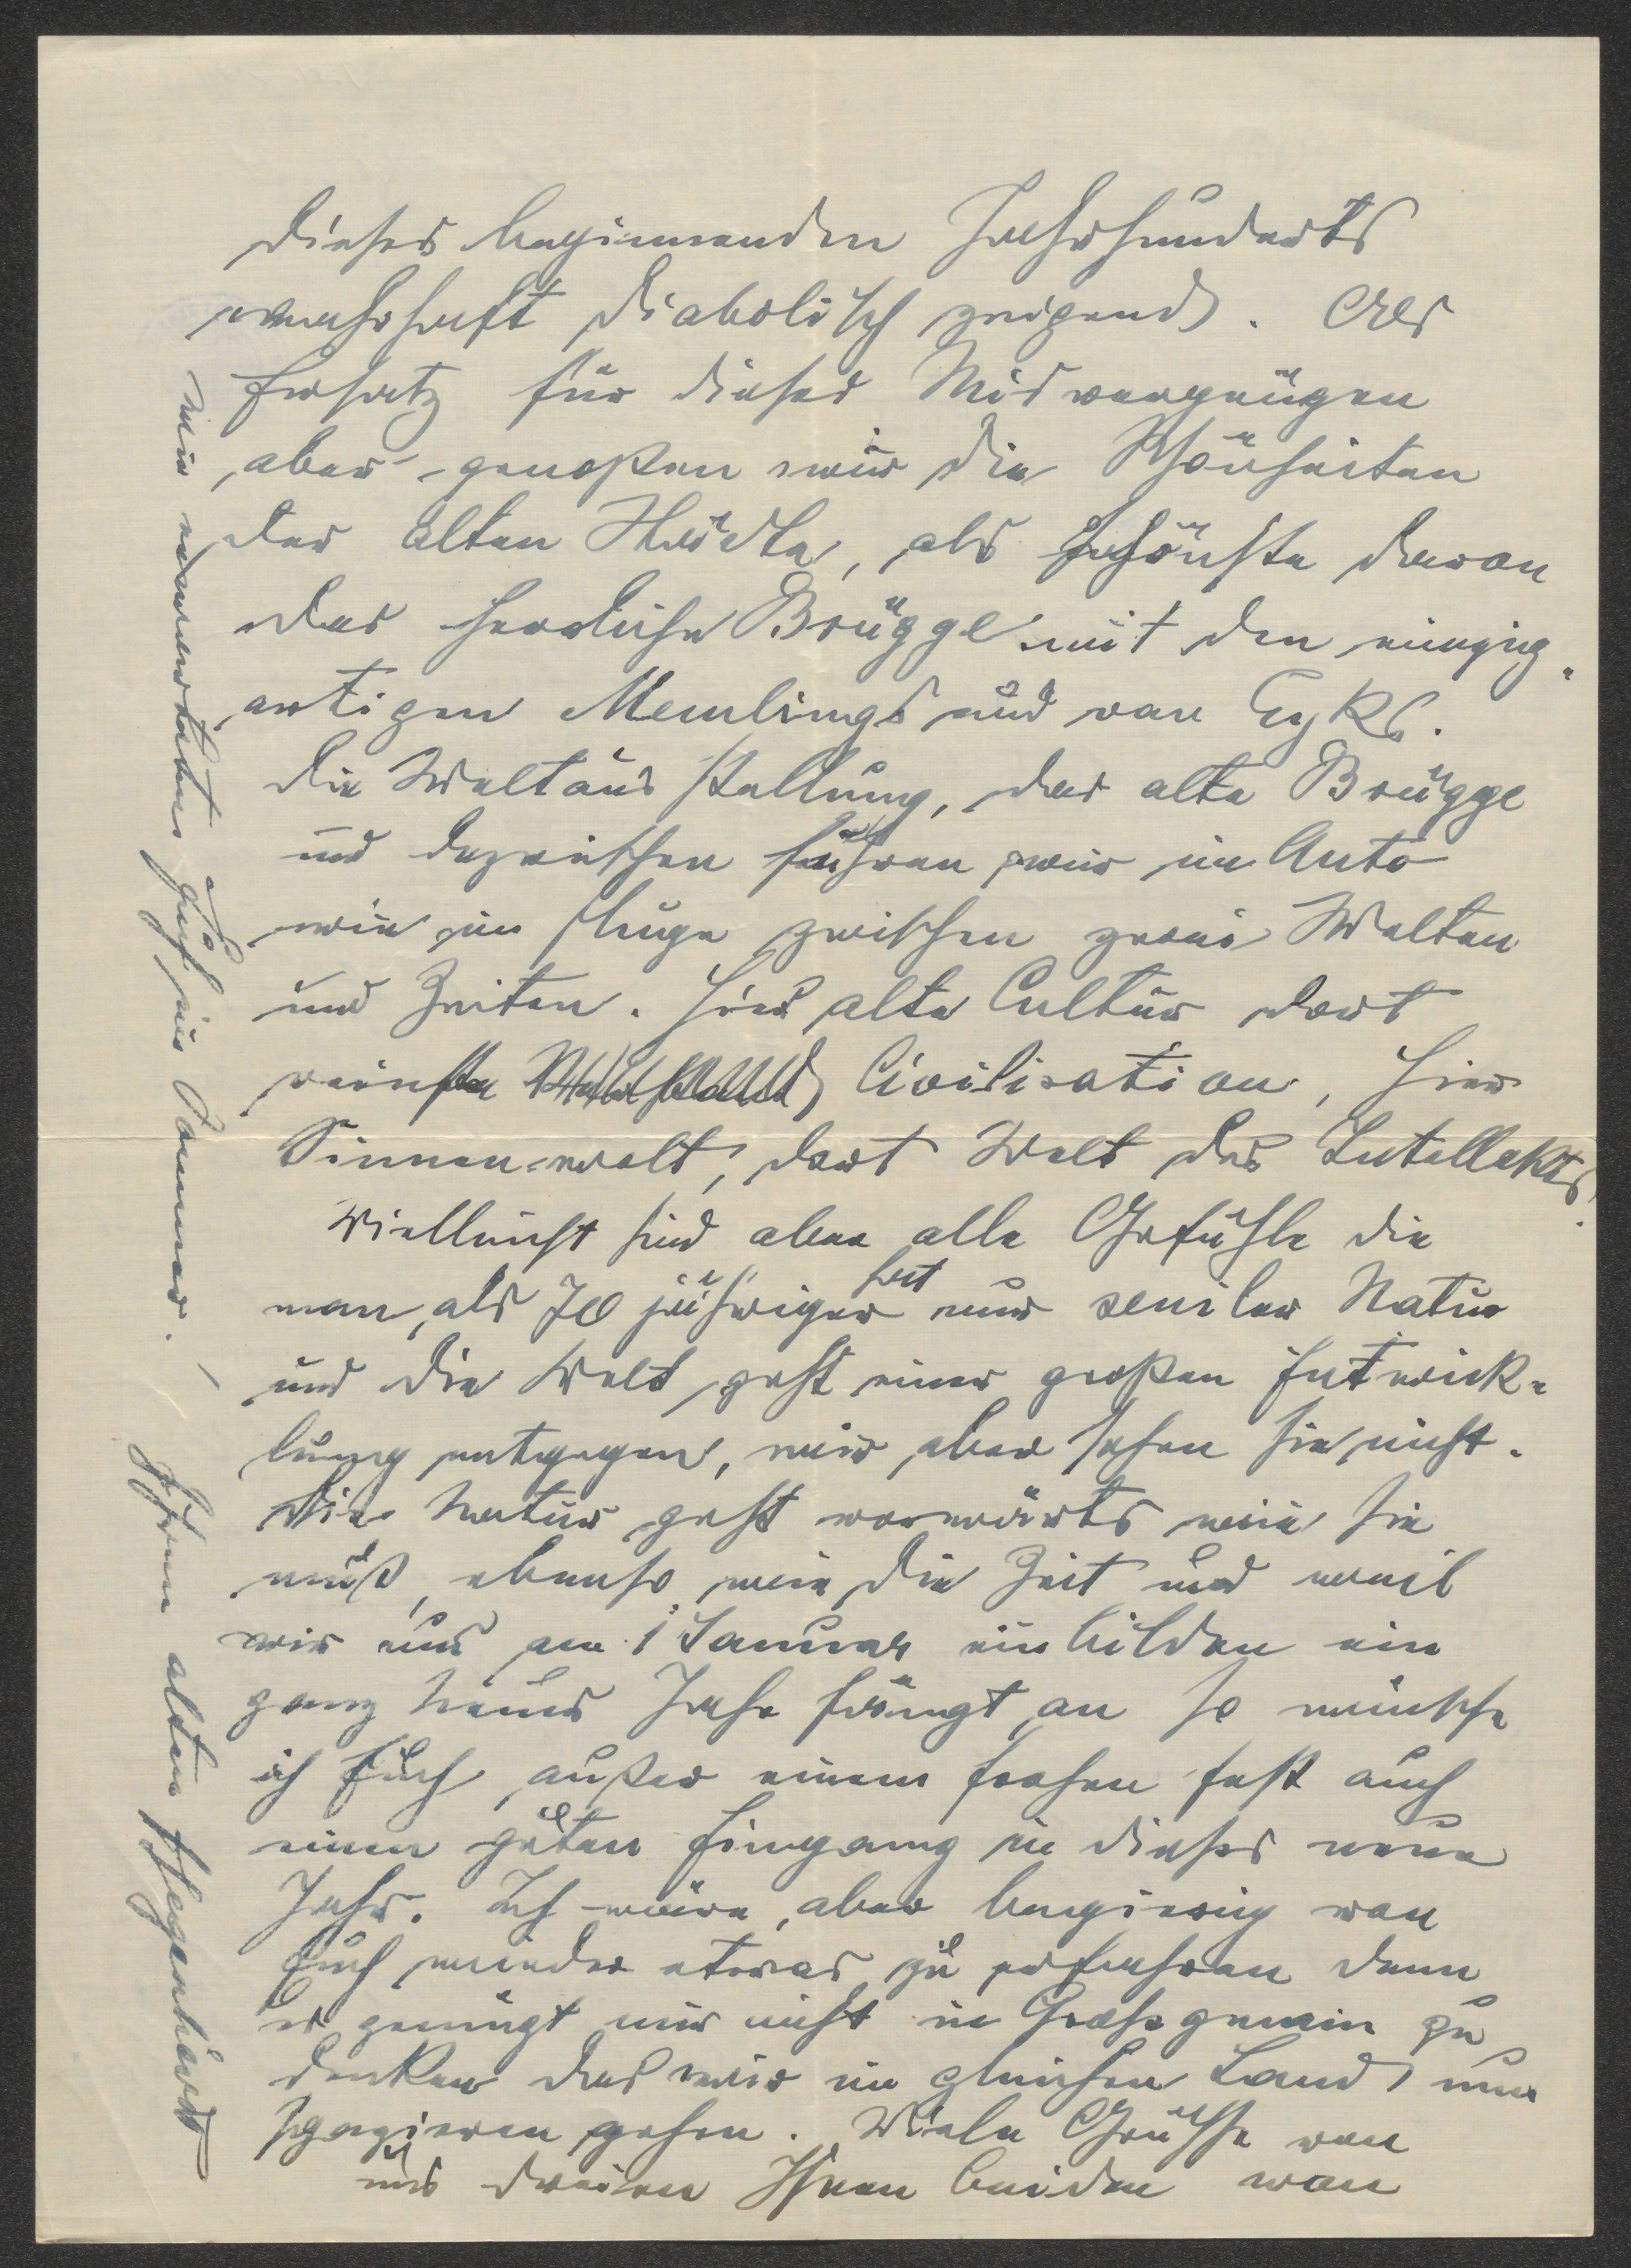 dieses beginnenden Jahrhunderts
wahrhaft diabolisch zeigend. Als
Ersatz für dieses Misvergnügen
aber genoßen wir die Schönheiten
der alten Städte, als schönste davon
das herrliche Brügge mit den einzig-
artigen Memlings und van Eyks.
Die Weltausstellung, das alte Brügge
und dazwischen fuhren wir im Auto
wie im Fluge zwischen zwei Welten
und Zeiten. Hier alte Cultur dort
reinste Civilisation, hier
Sinnenwelt, dort Welt des Intellekts.
Vielleicht sind aber alle Gefühle die
man, als 70 jähriger hat nur seniler Natur
und die Welt geht einer großen Entwick-
lung entgegen, wir aber sehen sie nicht.
Die Natur geht vorwärts wie sie
muß, ebenso wie die Zeit und weil
wir uns am 1 Januar einbilden ein
ganz neues Jahr fängt an so wünsche
ich Euch außer einem frohen Fest auch
einen guten Eingang in dieses neue
Jahr. Ich wäre aber begierig von
Euch wieder etwas zu erfahren denn
es genügt mir nicht im zu
denken das wir im gleichen Land nur
spazieren gehen. Viele Grüsse von
uns dreien Ihnen beiden von
Ihrem alten Hegenbarth